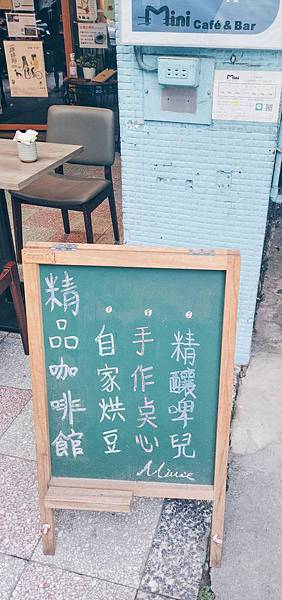 Mini
Café & Bar
精品咖啡館
自家烘豆
手作桌心
精釀啤兒
Minie